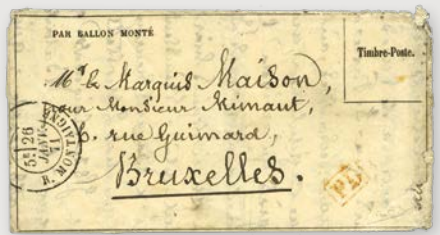 PAR BALLON MONTÉ
Timbre-Poste.
Mr le Marquis Maison,
pour Monsieur Mimaut,
6. rue Guimard,
Bruxelles.
R. MONTAIGNE
5E 26
JANV.
71
PD